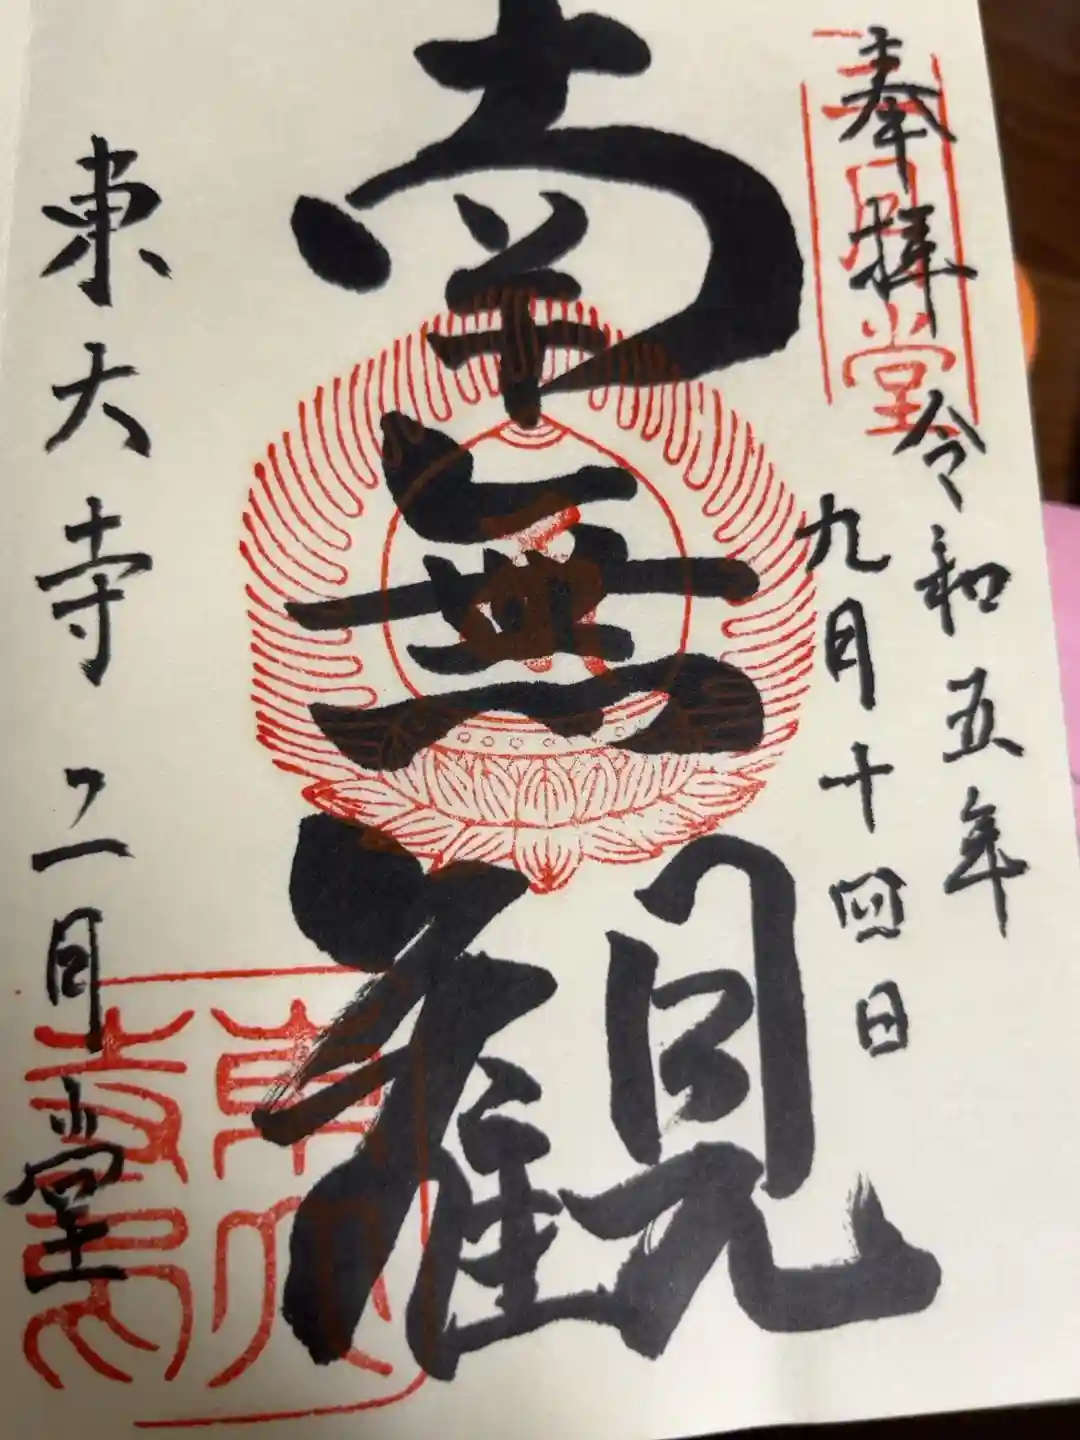 奉拝
二月堂
令和五年
九月十四日
南無観
東大寺二月堂
東大寺印